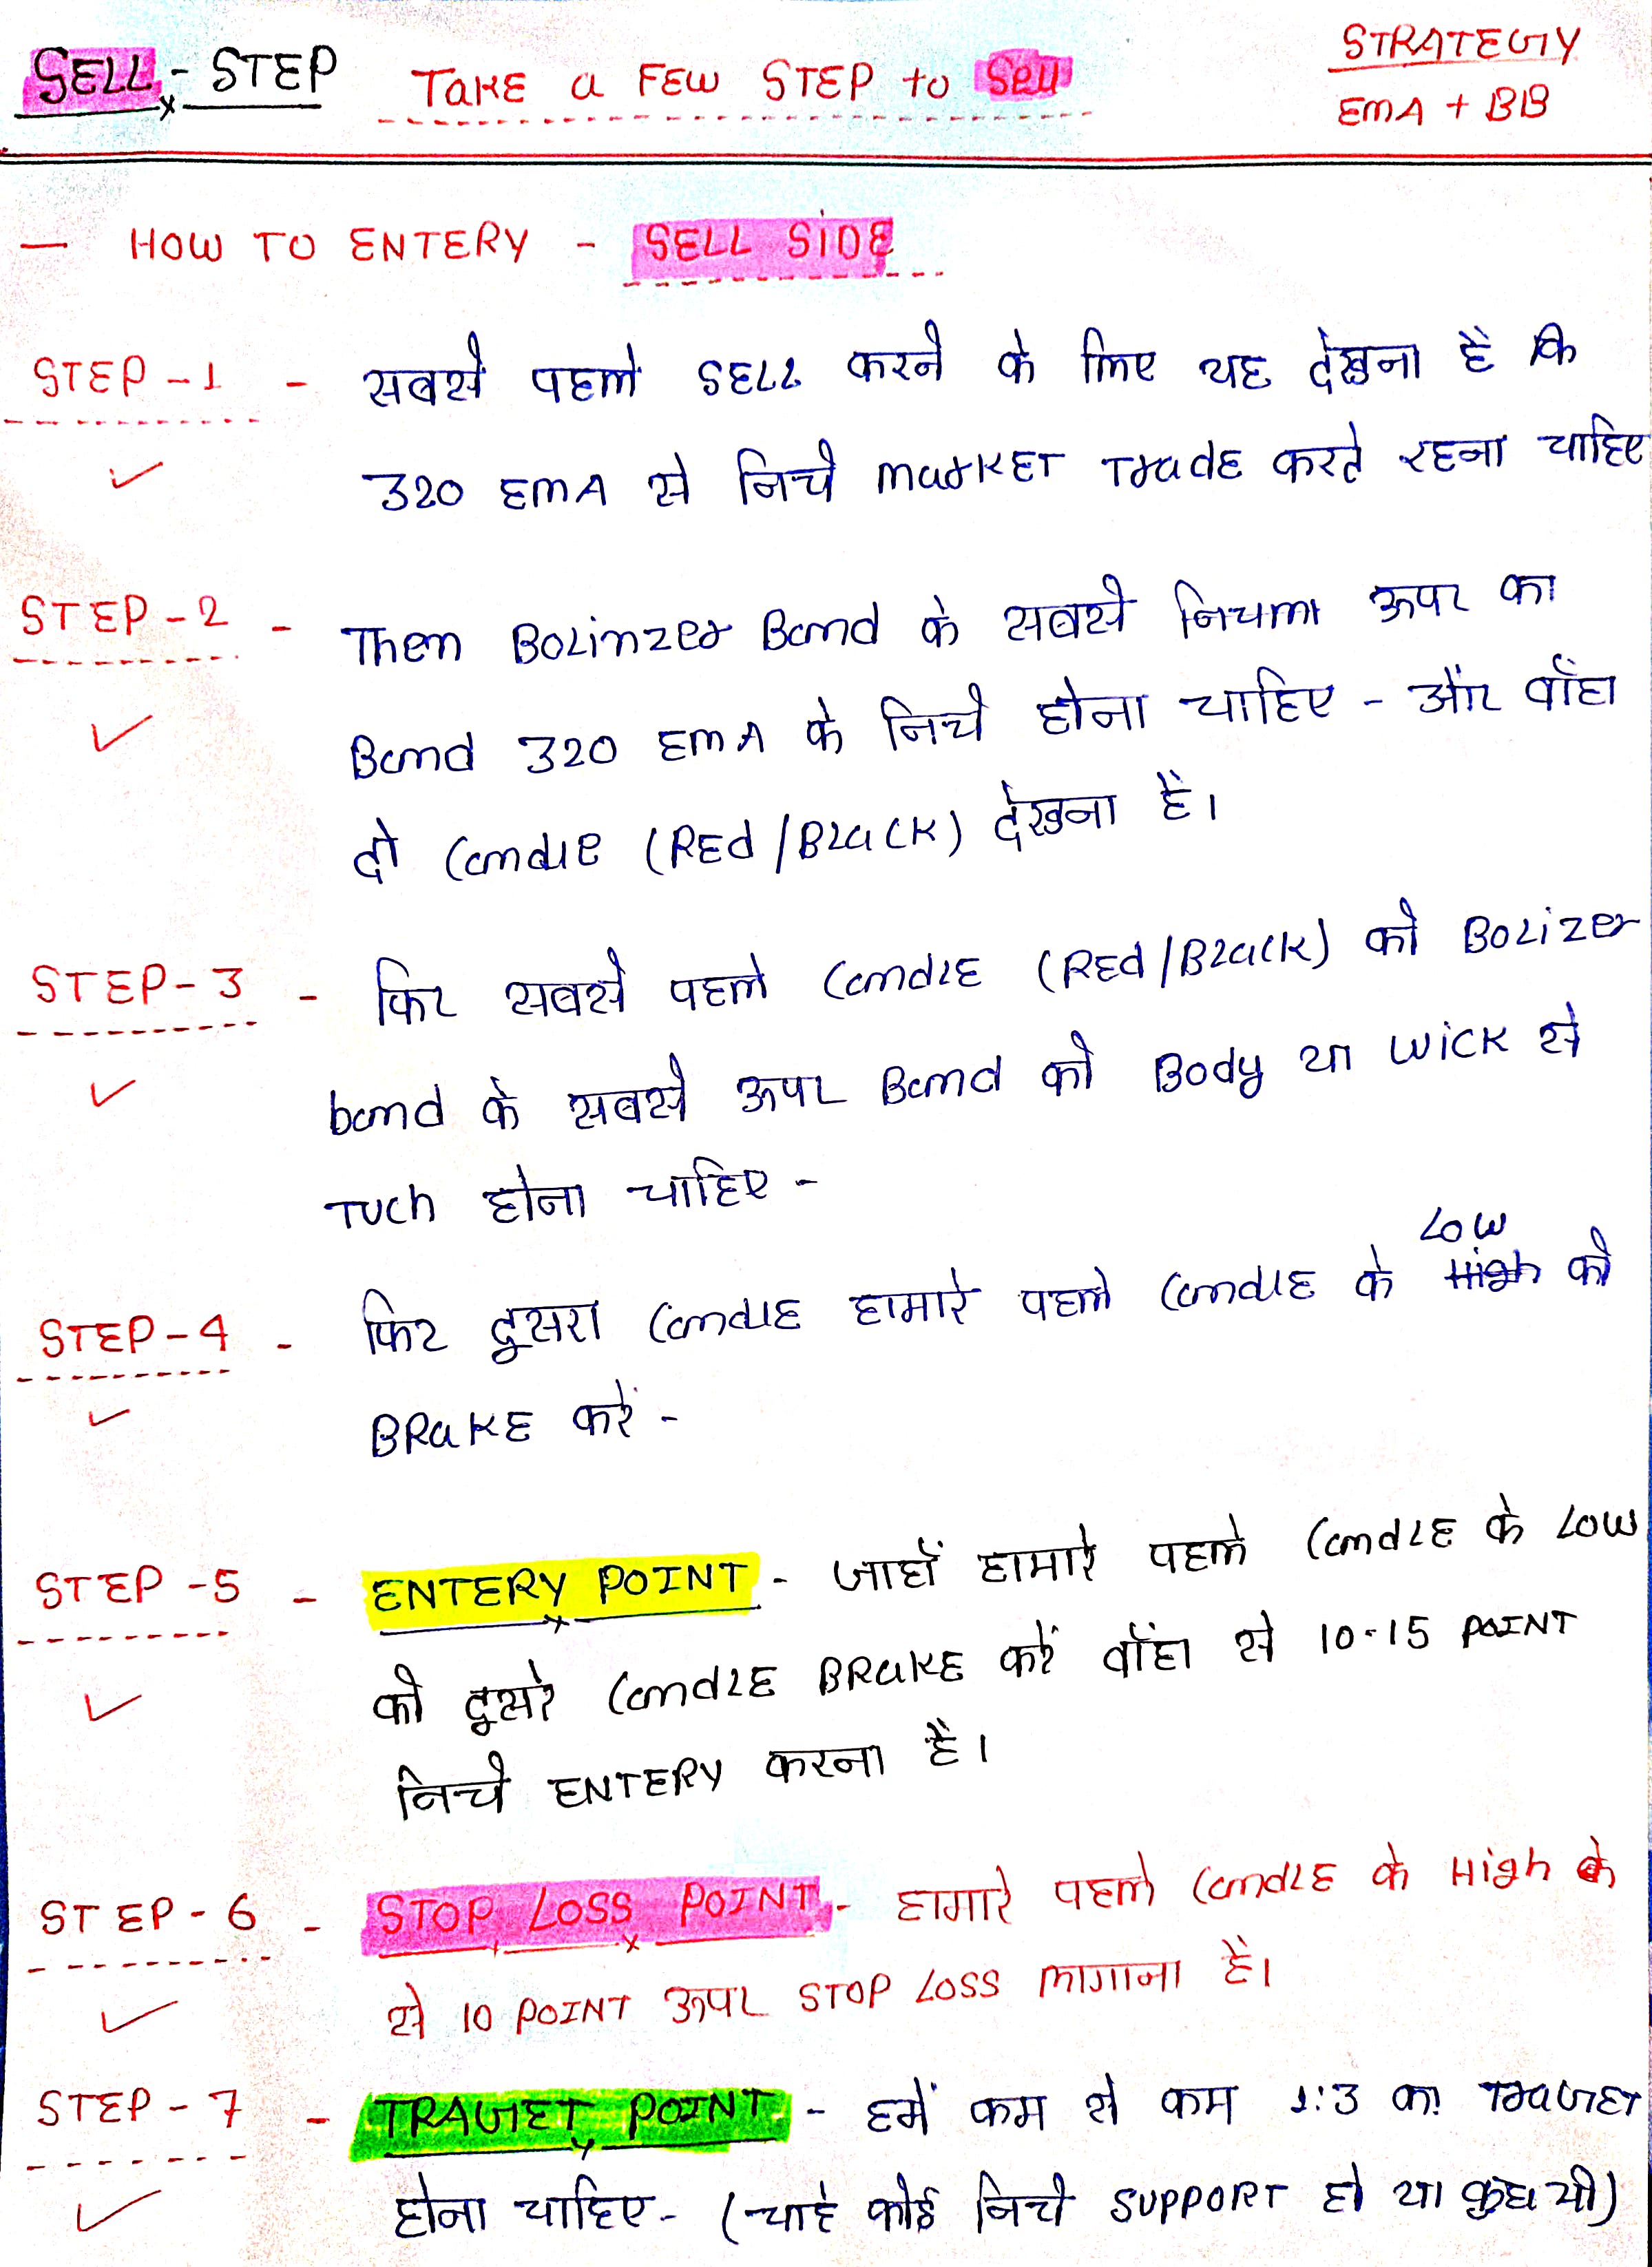 SELL - STEP TAKE a FEW STEP to Sell
STRATEGY
EMA + BB
— HOW TO ENTERY - SELL SIDE
STEP-1 - सबसे पहले SELL करने के लिए यह देखना है कि
320 EMA से निचे MarKET TradE करते रहना चाहिए
STEP-2 - Then BoLinzer Band के सबसे निचला ऊपर का
Band 320 EMA के निचे होना चाहिए - और वाँहा
दो CandlE (REd/BLacK) देखना है।
STEP-3 - फिर सबसे पहले CandLE (REd/BLacK) को BoLizer
band के सबसे ऊपर Band को Body या WicK से
Tuch होना चाहिए -
STEP-4 - फिर दुसरा CandlE हामारे पहले CandlE के Low को
BRaKE करें -
STEP-5 - ENTERY POINT - जाहाँ हामारे पहले CandLE के LOW
को दुसरे CandLE BRaKE करें वाँहा से 10-15 POINT
निचे ENTERY करना है।
STEP-6 - STOP LOSS POINT - हामारे पहले CandLE के High के
से 10 POINT ऊपर STOP LOSS लागाना है।
STEP-7 - TRAGET POINT - हमें कम से कम 1:3 का TraGET
होना चाहिए - (चाहे कोई निचे SUPPORT हो या कुछ भी)